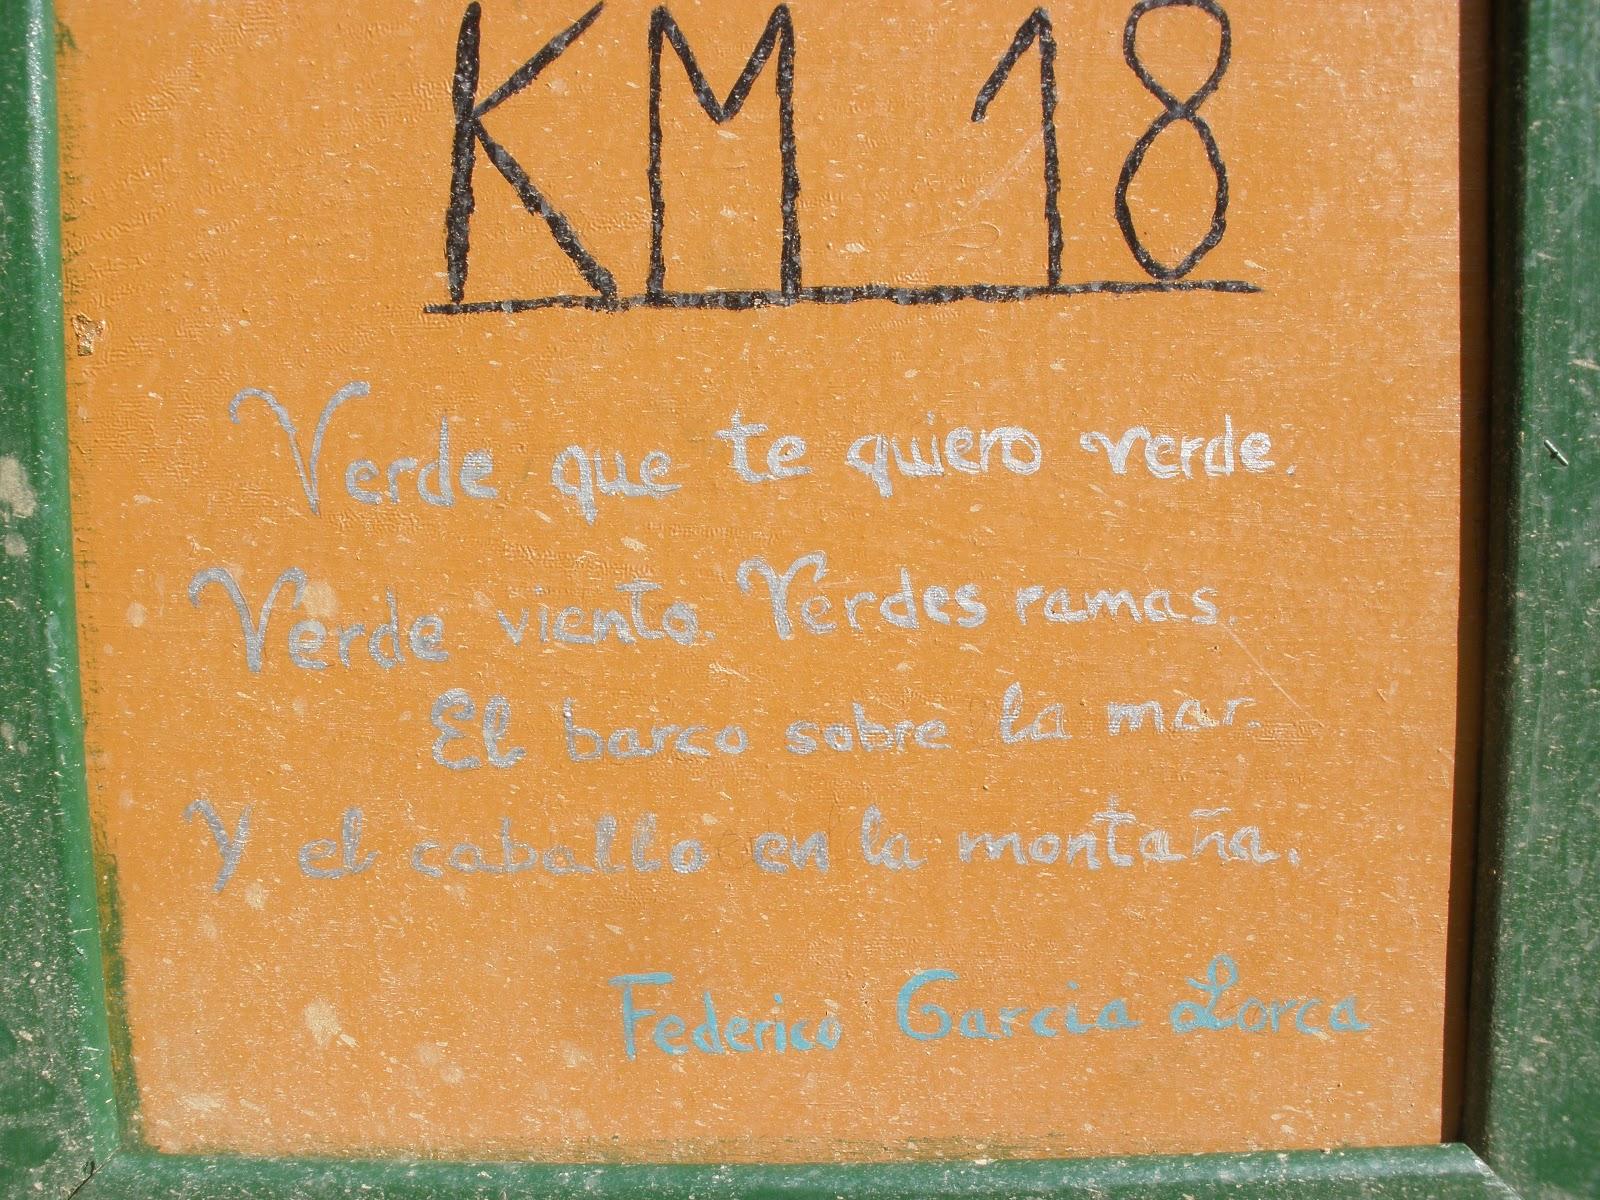 KM 18
Verde que te quiero verde.
Verde viento. Verdes ramas.
El barco sobre la mar.
Y el caballo en la montaña.
Federico Garcia Lorca